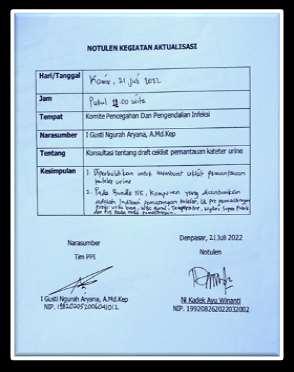 NOTULEN KEGIATAN AKTUALISASI
Hari/Tanggal Kamis, 21 juli 2022
Jam Pukul 12.00 wita
Tempat Komite Pencegahan Dan Pengendalian Infeksi
Narasumber I Gusti Ngurah Aryana, A.Md.Kep
Tentang Konsultasi tentang draft ceklist pemantauan kateter urine
Kesimpulan 1. Diperbolehkan untuk membuat ceklist pemantauan
kateter urine
2. Pada Bundle ISK, Komponen yang dicantumkan
adalah Indikasi pemasangan kateter,
Denpasar, 21 Juli 2022
Narasumber Notulen
Tim PPI
I Gusti Ngurah Aryana, A.Md.Kep Ni Kadek Ayu Winanti
NIP. NIP. 199208262022032002